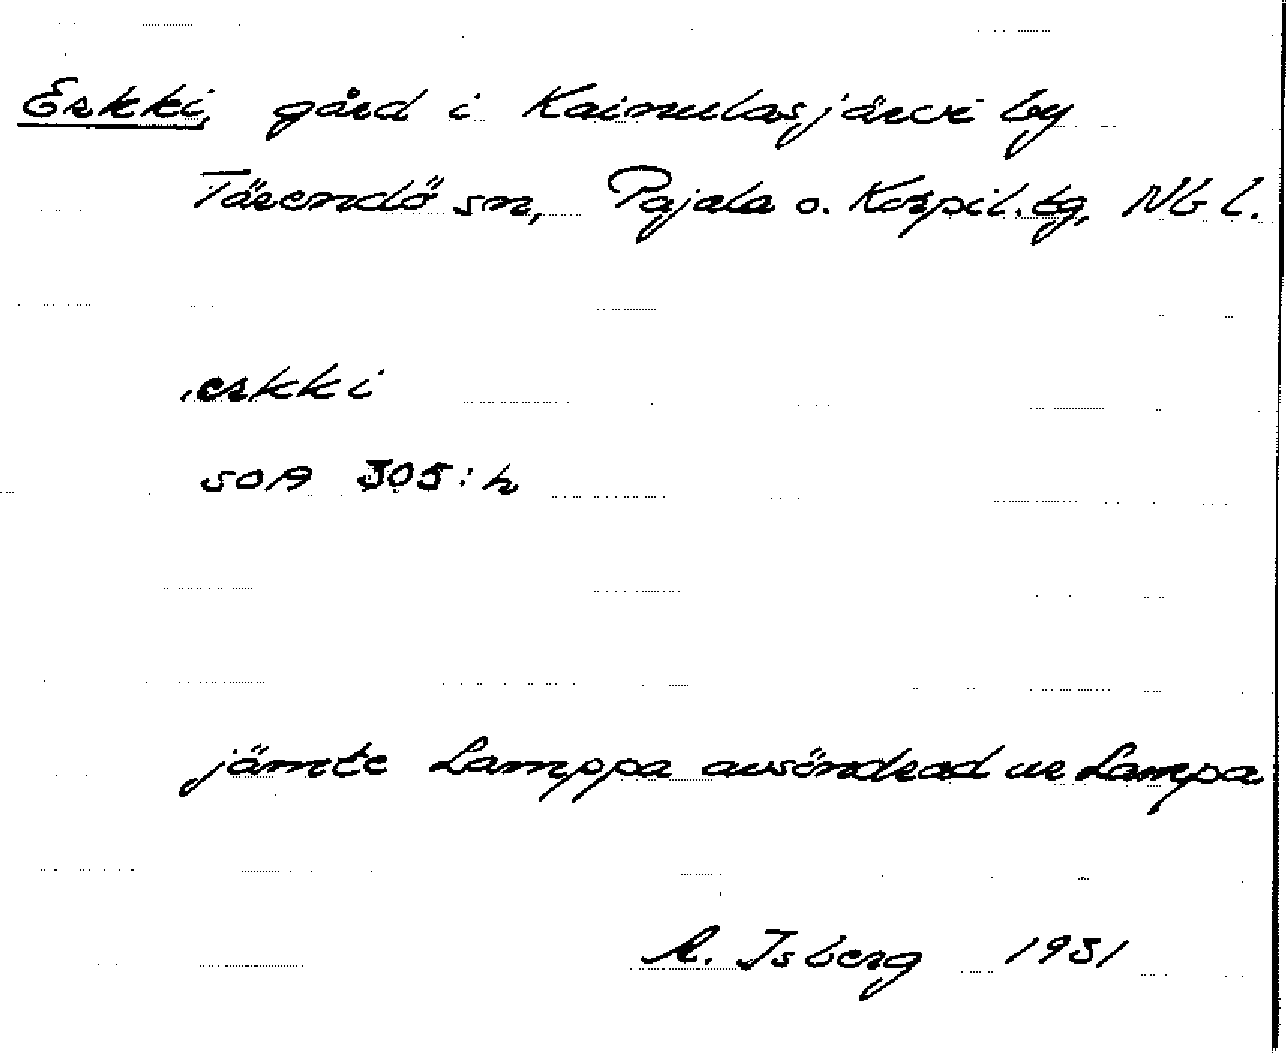 Erkki, gård i Kainulasjärvi by
Tärendö sn, Pajala o. Korpil. tg, Nb l.
erkki
SOA 305: h
jämte Lamppa avsöndrad ur Lampa
A. Isberg 1931